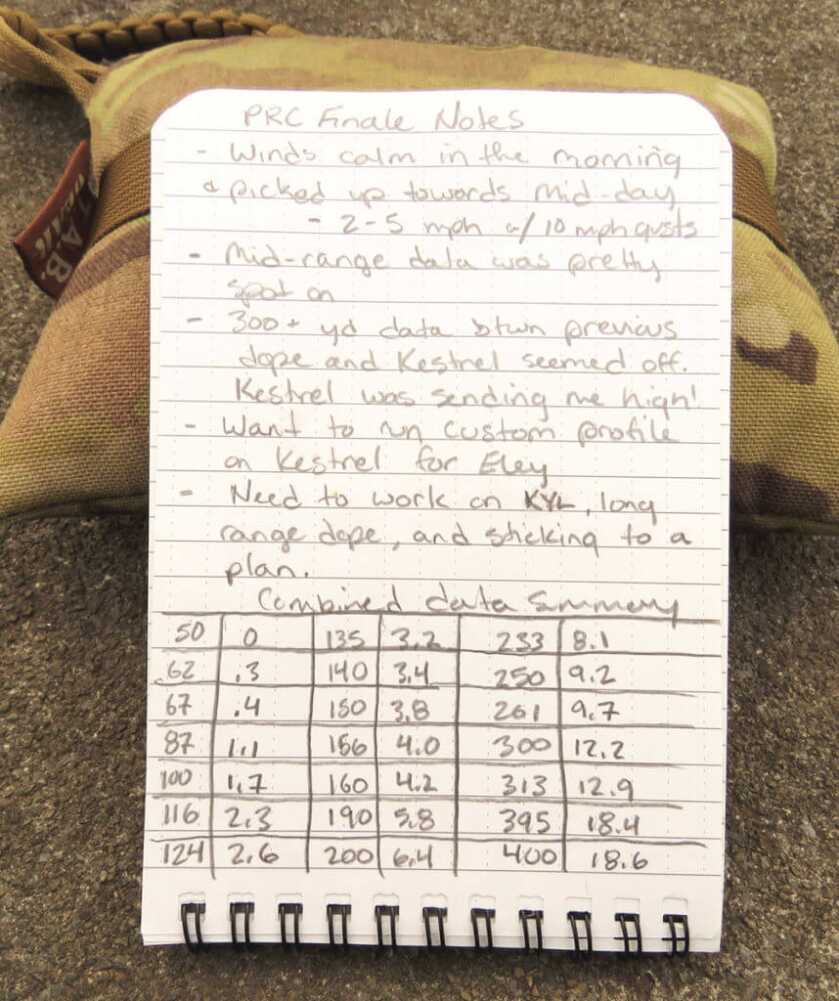 PRC Finale Notes
- Winds calm in the morning
& picked up towards mid-day
- 2-5 mph w/ 10 mph gusts
- Mid-range data was pretty
spot on
- 300+ yd data btwn previous
dope and Kestrel seemed off.
Kestrel was sending me high!
- Want to run custom profile
on Kestrel for Eley
- Need to work on KYL, long
range dope, and sticking to a
plan.
Combined data summary
50 0 135 3.2 233 8.1
62 .3 140 3.4 250 9.2
67 .4 150 3.8 261 9.7
87 1.1 156 4.0 300 12.2
100 1.7 160 4.2 313 12.9
116 2.3 190 5.8 395 18.4
124 2.6 200 6.4 400 18.6